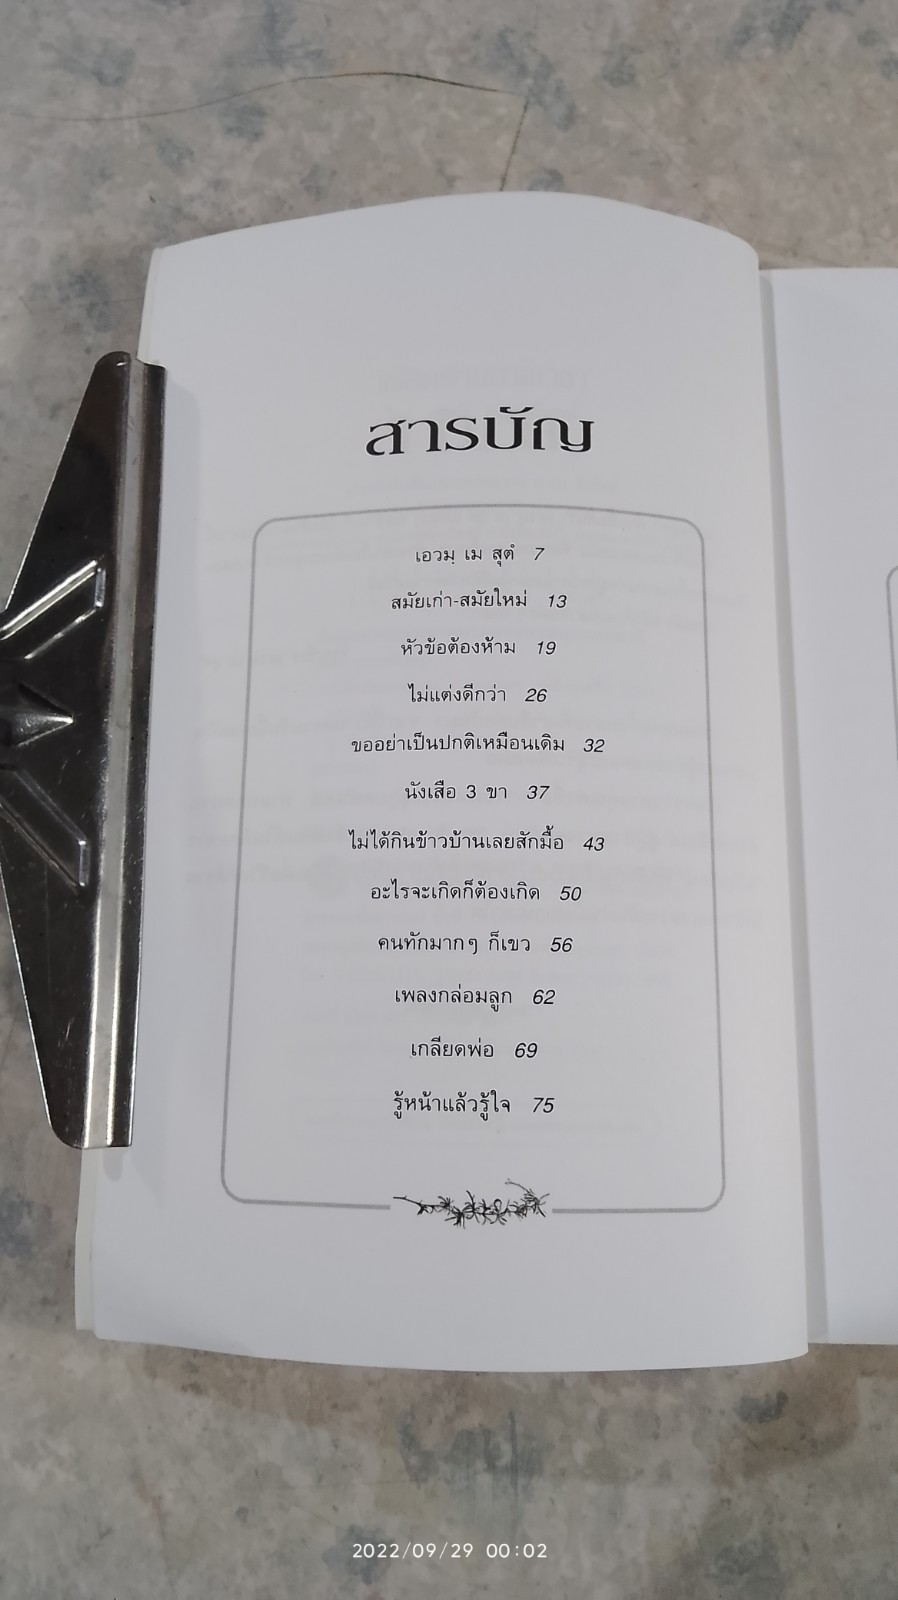 สารบัญ
เอวมฺ เม สุตํ 7
สมัยเก่า-สมัยใหม่ 13
หัวข้อต้องห้าม 19
ไม่แต่งดีกว่า 26
ขออย่าเป็นปกติเหมือนเดิม 32
นังเสือ 3 ขา 37
ไม่ได้กินข้าวบ้านเลยสักมื้อ 43
อะไรจะเกิดก็ต้องเกิด 50
คนทักมากๆ ก็เขว 56
เพลงกล่อมลูก 62
เกลียดพ่อ 69
รู้หน้าแล้วรู้ใจ 75
2022/09/29 00:02